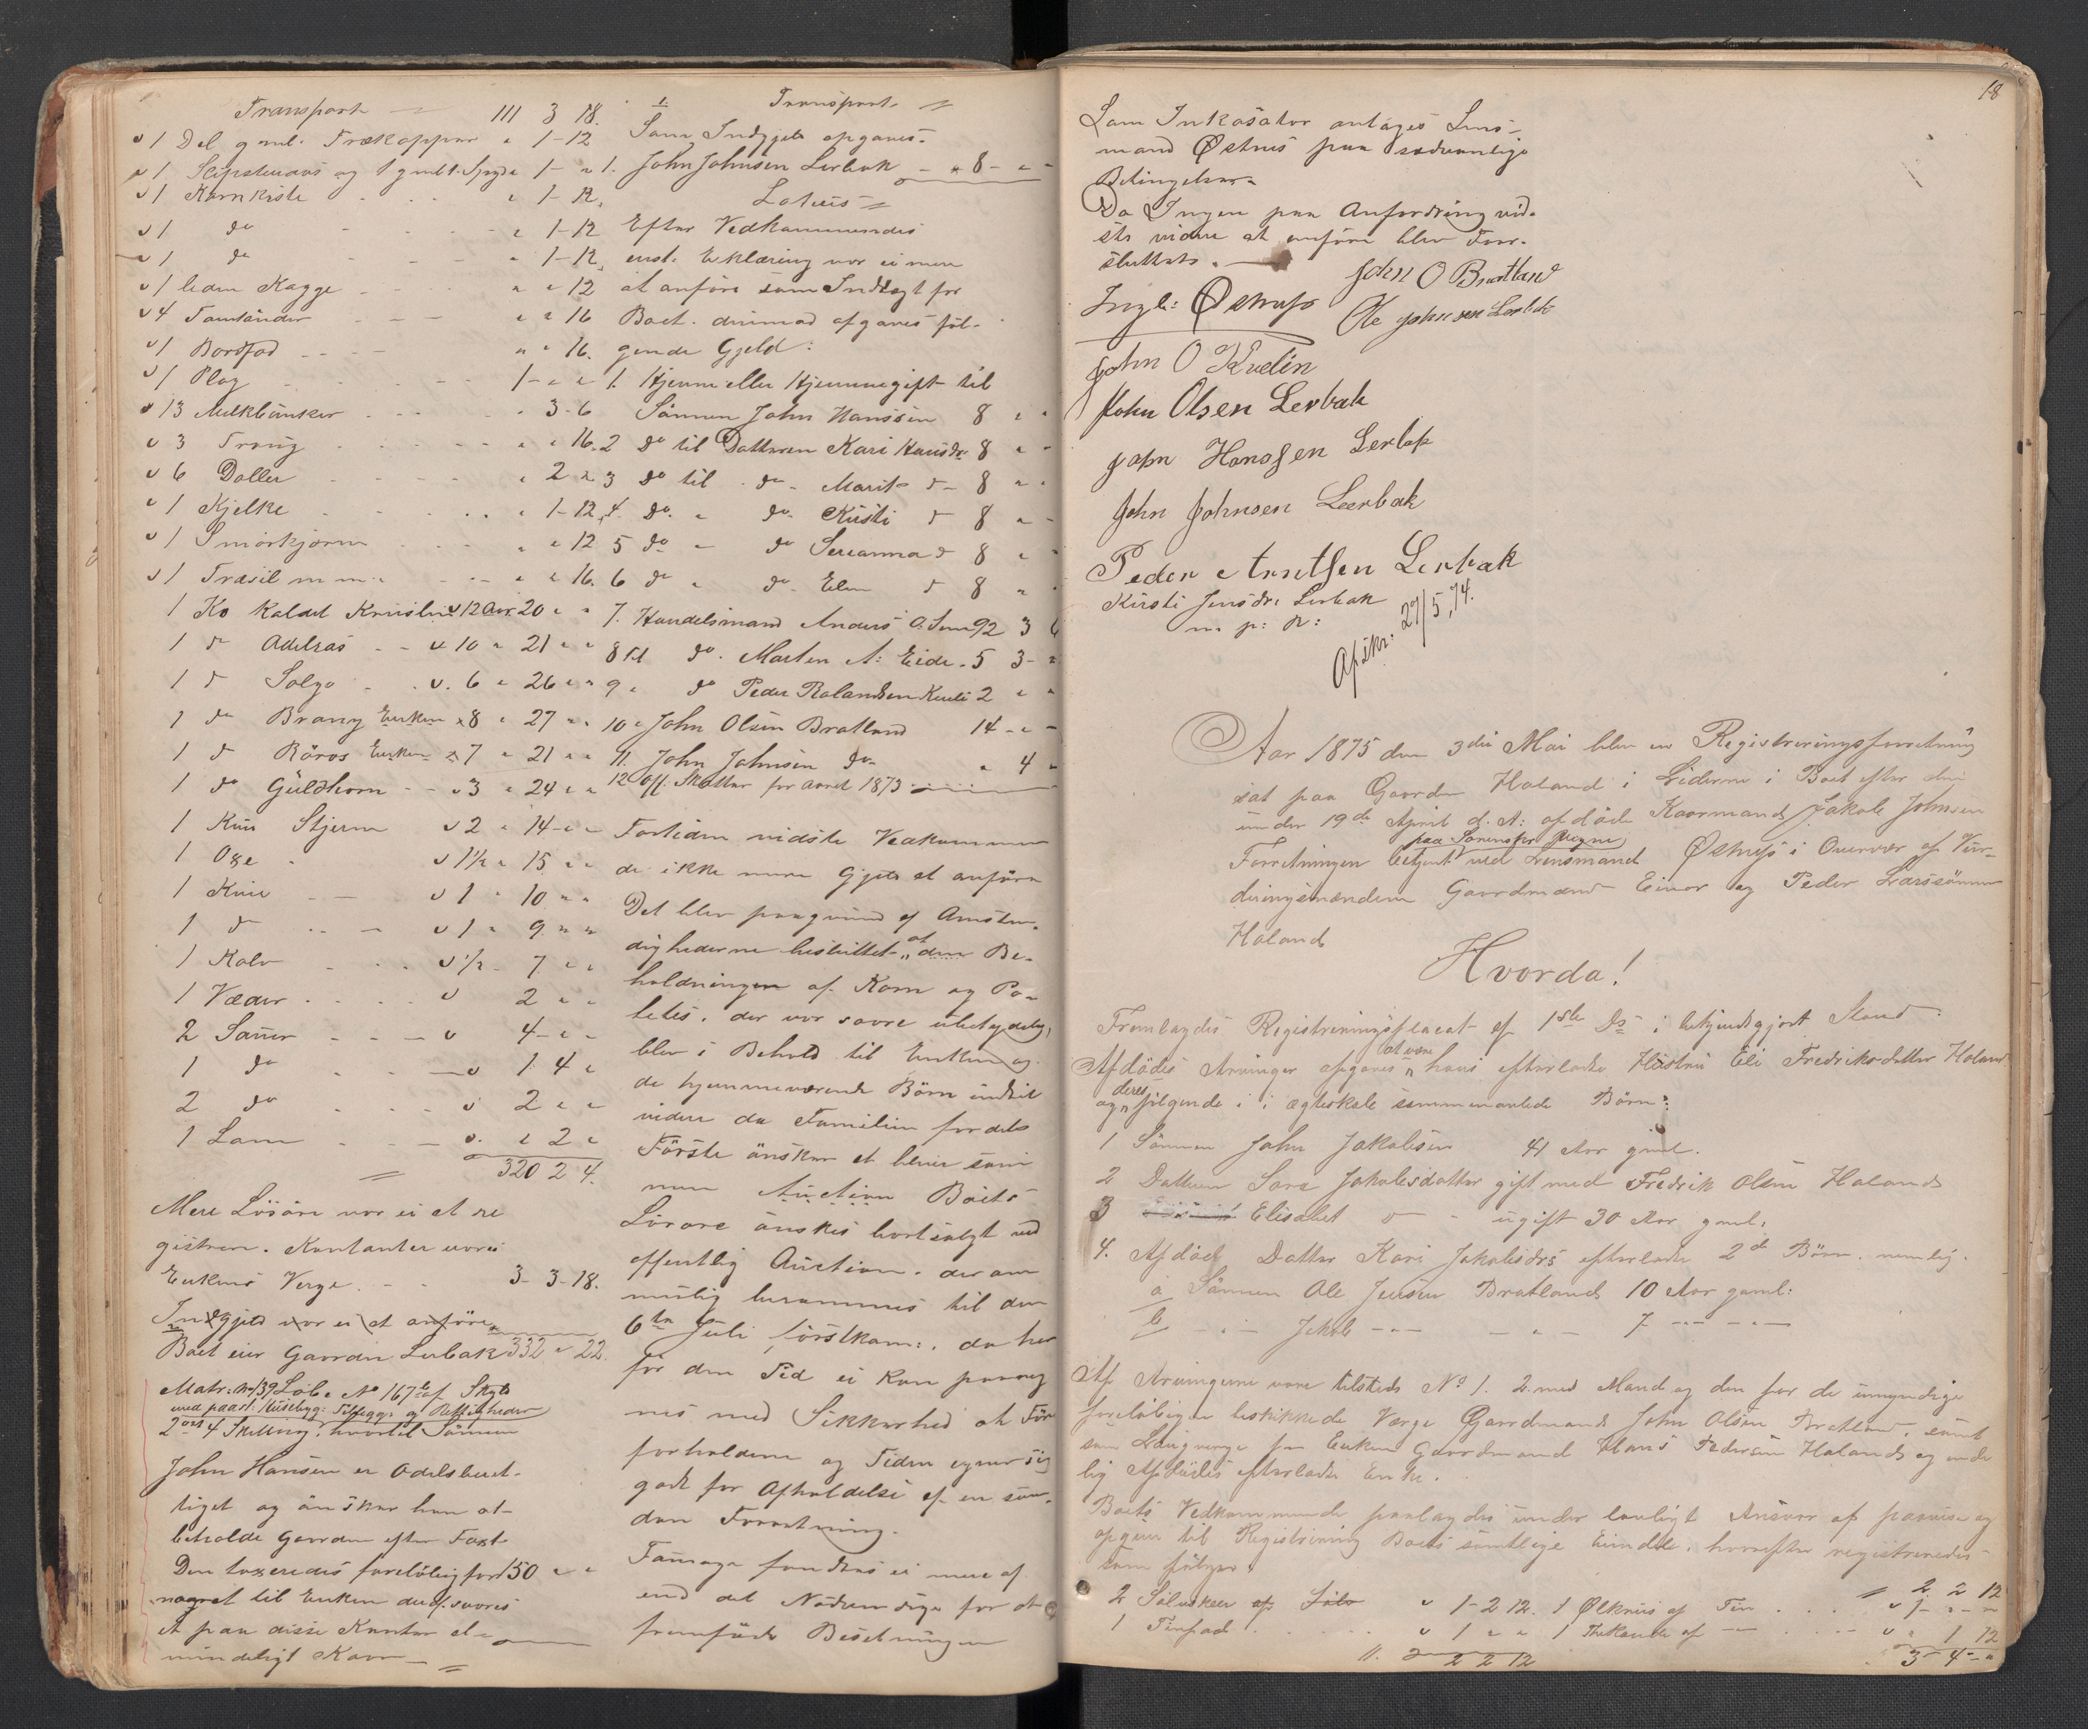 Transport 111 3 18.
v 1 Del gml. Trækopper " 1-12
v 1 Slipsteens og 1 gml. Spyd " 1- "
v 1 Kornkiste " 1-12.
v 1 do " 1-12
v 1 do " 1-12
v 1 liden Kagge " " 12
v 4 Tomtønder " " 16
v 1 Bordfod " " 16.
v 1 Plog 1- " "
v 13 Melkbunker " 3-6
v 3 Traug " " 16.
v 6 Daller " 2 "
v 1 Kjelke " 1-12.
v 1 Smørkjærne " " 12
v 1 Træsil m. m. " " 16.
1 Ko kaldet v 12 Aar 20 " "
1 do Adelraas v 10 " 21 " "
1 do Solgo v. 6 " 26 " "
1 do Brany Enken x 8 " 27 " "
1 do Röros Enken x 7 " 21 " "
1 do Güldhorn v 3 " 24 " "
1 Kvie Stjerne v 2 " 14 - " "
1 Oxe v 1½ " 15 " "
1 Kvie v 1 " 10 " "
1 do v 1 " 9 " "
1 Kalv v ½ - 7 " "
1 Væder v 2 " "
2 Sauer v 4 - " "
1 do v 1 4 "
2 do v 2 " "
1 Lam v. " 2 "
320 2 4.
Mere Lösöre var ei at re
gistrere. Kontanter vares
Enkens Verge 3-3-18.
Indgjeld var ei at anføre
Boet eier Gaarden Lerbak 332 " 22.
Matr: No 139 Löbe No 167 b af Skyld
med paast: Husebyg: Tillegg: og Rettigheder
2 ort 4 Skilling, hvortil Sønnen
John Hansen er Odelsberet-
tiget og önsker han at
beholde Gaarden efter Taxt
Den taxeredes foreløbig for 150 " "
noget til Enken deraf svares
at paa disse Kanter al-
mindeligt Kaar
Transport
Som Indgjeld opgaves:
1. John Johnsen Lerbak - " 8 - " "
Latus
Efter Vedkommendes
enst. Erklæring var ei mere
at anføre som Indtægt for
Boet. derimod opgaves føl-
gende Gjeld:
1. Hjemme eller Hjemmegift til
Sönnen John Hanssen 8 " "
2 do til Datteren Kari Hansdr 8 " "
3 do til do Marit do 8 " "
4. do " do Kirsti do 8 " "
5 do " do Serianna do 8 " "
6 do " do Elen do 8 " "
7. Handelsmand Anders O. 92 3 6
8 til do. Morten A: Eide. 5 3 - "
9 " do Peder Rolandsen 2 " "
10 " John Olsen Bratland 14 - " -
11. John Johnsen do " 4 "
12 Off. Skatter for aaret 1873
Fortiden vidste Vedkommen
de ikke mere Gjeld at anføre
Det blev paagrund af Omsten-
dighederne besluttet at den Be-
holdningen af Korn og Po-
tetes, der var saare ubetydelig,
blev i Behold til Enken og
de hjemmeværende Børn indtil
videre da Familien fordels
Første önsker at blive sam
men Auction Boets
Lösöre önskes bortsolgt ved
offentlig Auction, der an
melig berammes til den
6te Juli förstkom:, da her
før den Tid ei kan paareg
nes med Sikkerhed at För
forholdene og Tiden egner sig
godt for Afholdelse af en saa-
dan Forretning.
Fourage fandtes ei mere af
end det Nödvendige for at
fremføde Besetningen
18
Som Inkasator antages Lens-
mand Østnes paa sædvanlige
Betingelser
Da Ingen paa Anfordring vid-
ste videre at anføre blev Forr.
sluttet.
John O Bratland
Ingb: Østrups Ole Johnsen Lerbak
John O Kvelin
John Olsen Lerbak
John Hansen Lerbak
John Johnsen Leerbak
Peder Arntsen Lerbak
Kirsti Jensdr. Lerbak
m. p: P:
Afskr: 27/5, 74.
Aar 1875 den 3die Mai blev en Registreringsforretning
sat paa Gaarden Haland i Lierne i Boet efter den
under 19de April d. A: afdöde Kaarmand Jakob Johnsen
paa Sorenskriver Vegne
Forretningen betjent ved Lensmand Østrup i Overvær af Vur-
deringsmændene Gaardmænd Einer og Peder Larssönner
Haland
Hvorda!
Fremlagdes Registreringsplacat af 1ste ds i bekjendtgjort Stand.
Afdödes Arvinger opgaves at være hans efterladte Hustru Eli Fredriksdatter Haland
og deres følgende i i ægteskab sammenavlede Börn:
1 Sönnen John Jakobsen 41 Aar gml.
2 Datteren Sara Jakobsdatter gift med Fredrik Olsen Haland
3 Elisabet do - ugift 30 Aar gml.
4. Afdöd Datter Kari Jakobsdrs efterladte 2de Börn, nemlig.
a Sönnen Ole Jensen Bratland 10 Aar gaml:
b - " - Jakob - " - - " - 7 - " - - " -
Af Arvingerne vare tilstede No 1. 2 med Mand og den for de umyndige
foreløbigen beskikkede Verge Gaardmand John Olsen Bratland, samt
som Laugverge for Enken Gaardmand Hans Pedersen Haland og ende
lig Afdödes efterladte Enke.
Boets Vedkommende paalagdes under lovligt Ansvar at paavise og
opgive til Registrering Boets samtlige Eiendele, hvorefter registreredes
som følger:
2 Sölvskeer af Sölv v 1-2 12.
1 Tinfad v 1 " "
2 2 12
2 2 12
1 Ölkrus af Tin v 1 - " - "
1 Thekande af - " - v " 1 12
3 - 4 - "